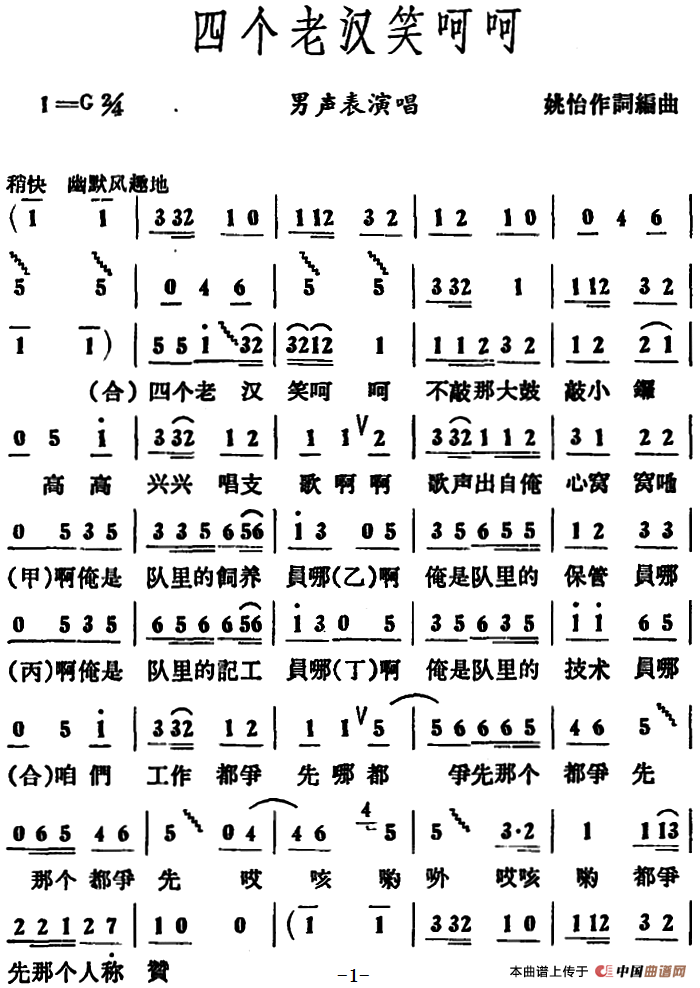 四个老汉笑呵呵
1=G 2/4
男声表演唱
姚怡作詞編曲
稍快 幽默风趣地
(1 1 | 3 32 1 0 | 1 12 3 2 | 1 2 1 0 | 0 4 6 |
5 5 | 0 4 6 | 5 5 | 3 32 1 | 1 12 3 2 |
1 1) | 5 5 i 32 | 3212 1 | 1 1 2 3 2 | 1 2 2 1 |
(合)四个老 汉 笑呵 呵 不敲那大鼓 敲小 鑼
0 5 i | 3 32 1 2 | 1 1 V 2 | 3 32 1 1 2 | 3 1 2 2 |
高 高 兴兴 唱支 歌 啊 啊 歌声出自俺 心窝 窝吔
0 5 3 5 | 3 3 5 6 56 | i 3 0 5 | 3 5 6 5 5 | 1 2 3 3 |
(甲)啊俺是 队里的飼养 員哪(乙)啊 俺是队里的 保管 員哪
0 5 3 5 | 6 5 6 6 56 | i 3 0 5 | 3 5 6 3 5 | i i 6 5 |
(丙)啊俺是 队里的記工 員哪(丁)啊 俺是队里的 技术 員哪
0 5 i | 3 32 1 2 | 1 1 V 5 | 5 6 6 6 5 | 4 6 5 |
(合)咱 們 工作 都爭 先 哪 都 爭先那个 都爭 先
0 6 5 4 6 | 5 0 4 | 4 6 4 5 | 5 3·2 | 1 1 13 |
那个 都爭 先 哎 咳 喲 外 哎咳 喲 都爭
2 2 1 2 7 | 1 0 0 | (1 1 | 3 32 1 0 | 1 12 3 2 |
先那个人称 贊
-1-
本曲谱上传于 中国曲谱网